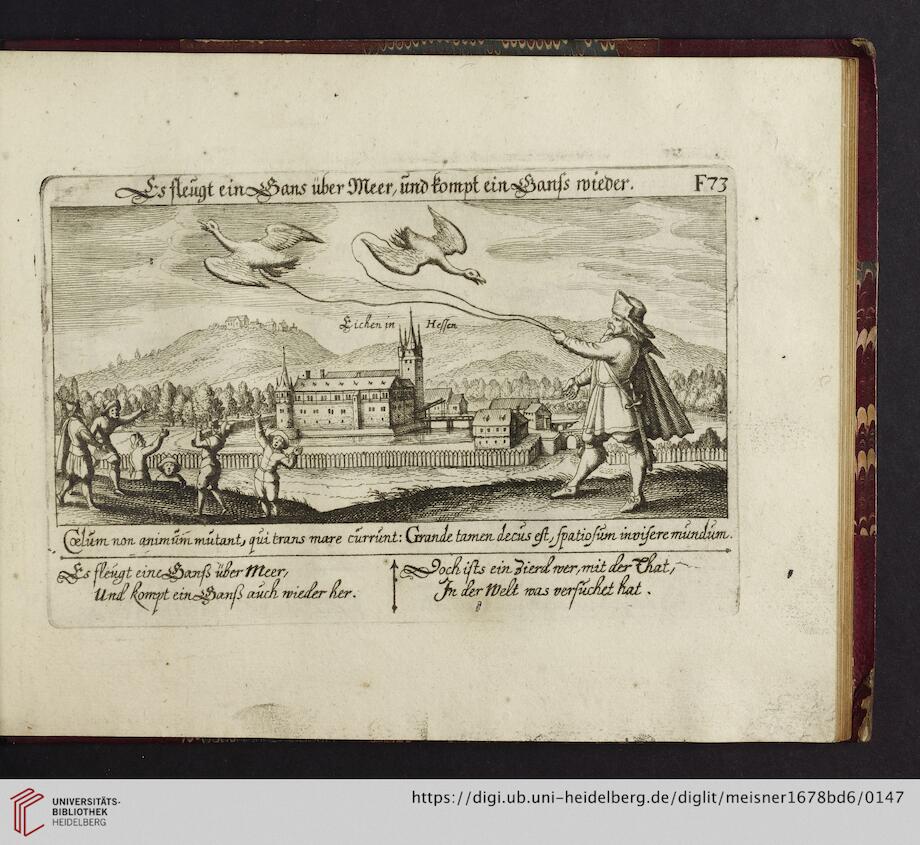 Es fleugt ein Gans über Meer, und kompt ein Ganß wieder.
F73
Eichen in Hessen
Cœlum non animum mutant, qui trans mare currunt: Grande tamen decus est, spatiosum invisere mundum.
Es fleugt eine Ganß über Meer,
Und kompt ein Ganß auch wieder her.
Doch ists ein zierd wer, mit der That,
In der Welt was versuchet hat.
UNIVERSITÄTS-
BIBLIOTHEK
HEIDELBERG
https://digi.ub.uni-heidelberg.de/diglit/meisner1678bd6/0147